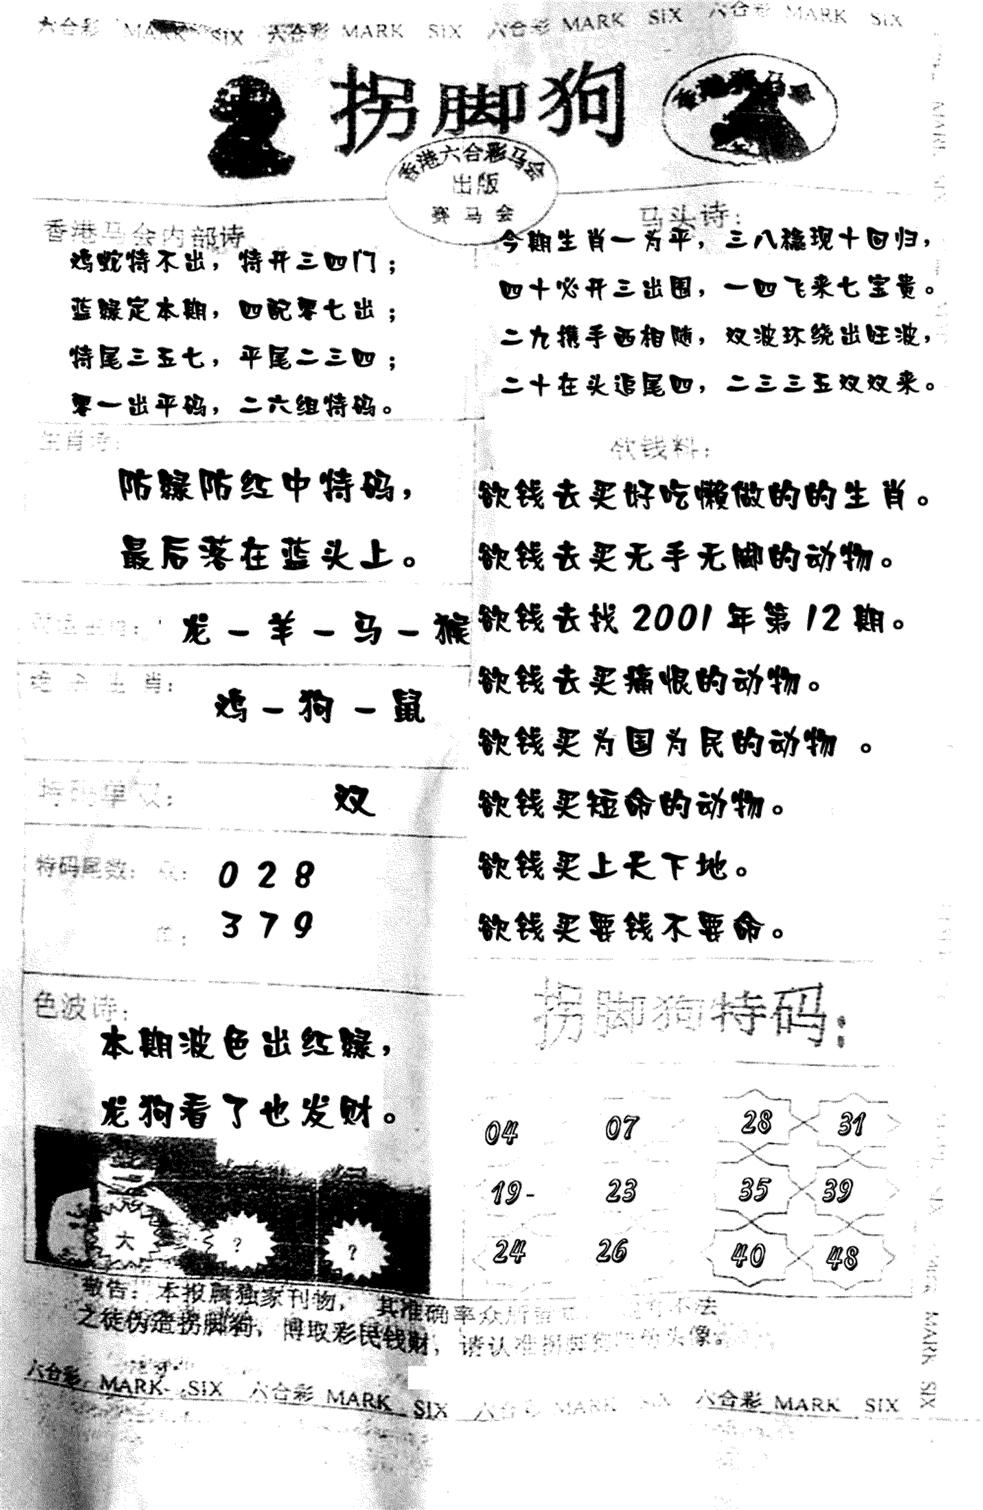 六合彩 MARK SIX 六合彩 MARK SIX 六合彩 MARK SIX 六合彩 MARK SIX
拐脚狗
香港赛马会
香港六合彩马会
出版
赛马会
香港马会内部诗
鸡蛇特不出，特开三四门；
蓝绿定本期，四配零七出；
特尾三五七，平尾二三四；
零一出平码，二六组特码。
马头诗：
今期生肖一为平，三八稳现十回归，
四十必开三出围，一四飞来七宝贵。
二九携手西相随，双波环绕出旺波，
二十在头追尾四，二三三五双双来。
生肖诗：
防绿防红中特码，
最后落在蓝头上。
龙－羊－马－猴
绝杀生肖：
鸡－狗－鼠
特码单双：
双
特码尾数：双：
028
单：
379
色波诗：
本期波色出红绿，
龙狗看了也发财。
大
?
?
欲钱料：
欲钱去买好吃懒做的的生肖。
欲钱去买无手无脚的动物。
欲钱去找2001年第12期。
欲钱去买痛恨的动物。
欲钱买为国为民的动物 。
欲钱买短命的动物。
欲钱买上天下地。
欲钱买要钱不要命。
拐脚狗特码：
04 07 28 31
19- 23 35 39
24 26 40 48
敬告：本报属独家刊物，其准确率众所皆
不法
之徒伪造拐脚狗，博取彩民钱财，请认准拐脚狗
头像。
六合彩 MARK SIX 六合彩 MARK SIX 六合彩 MARK SIX 六合彩 MARK SIX
MARK SIX